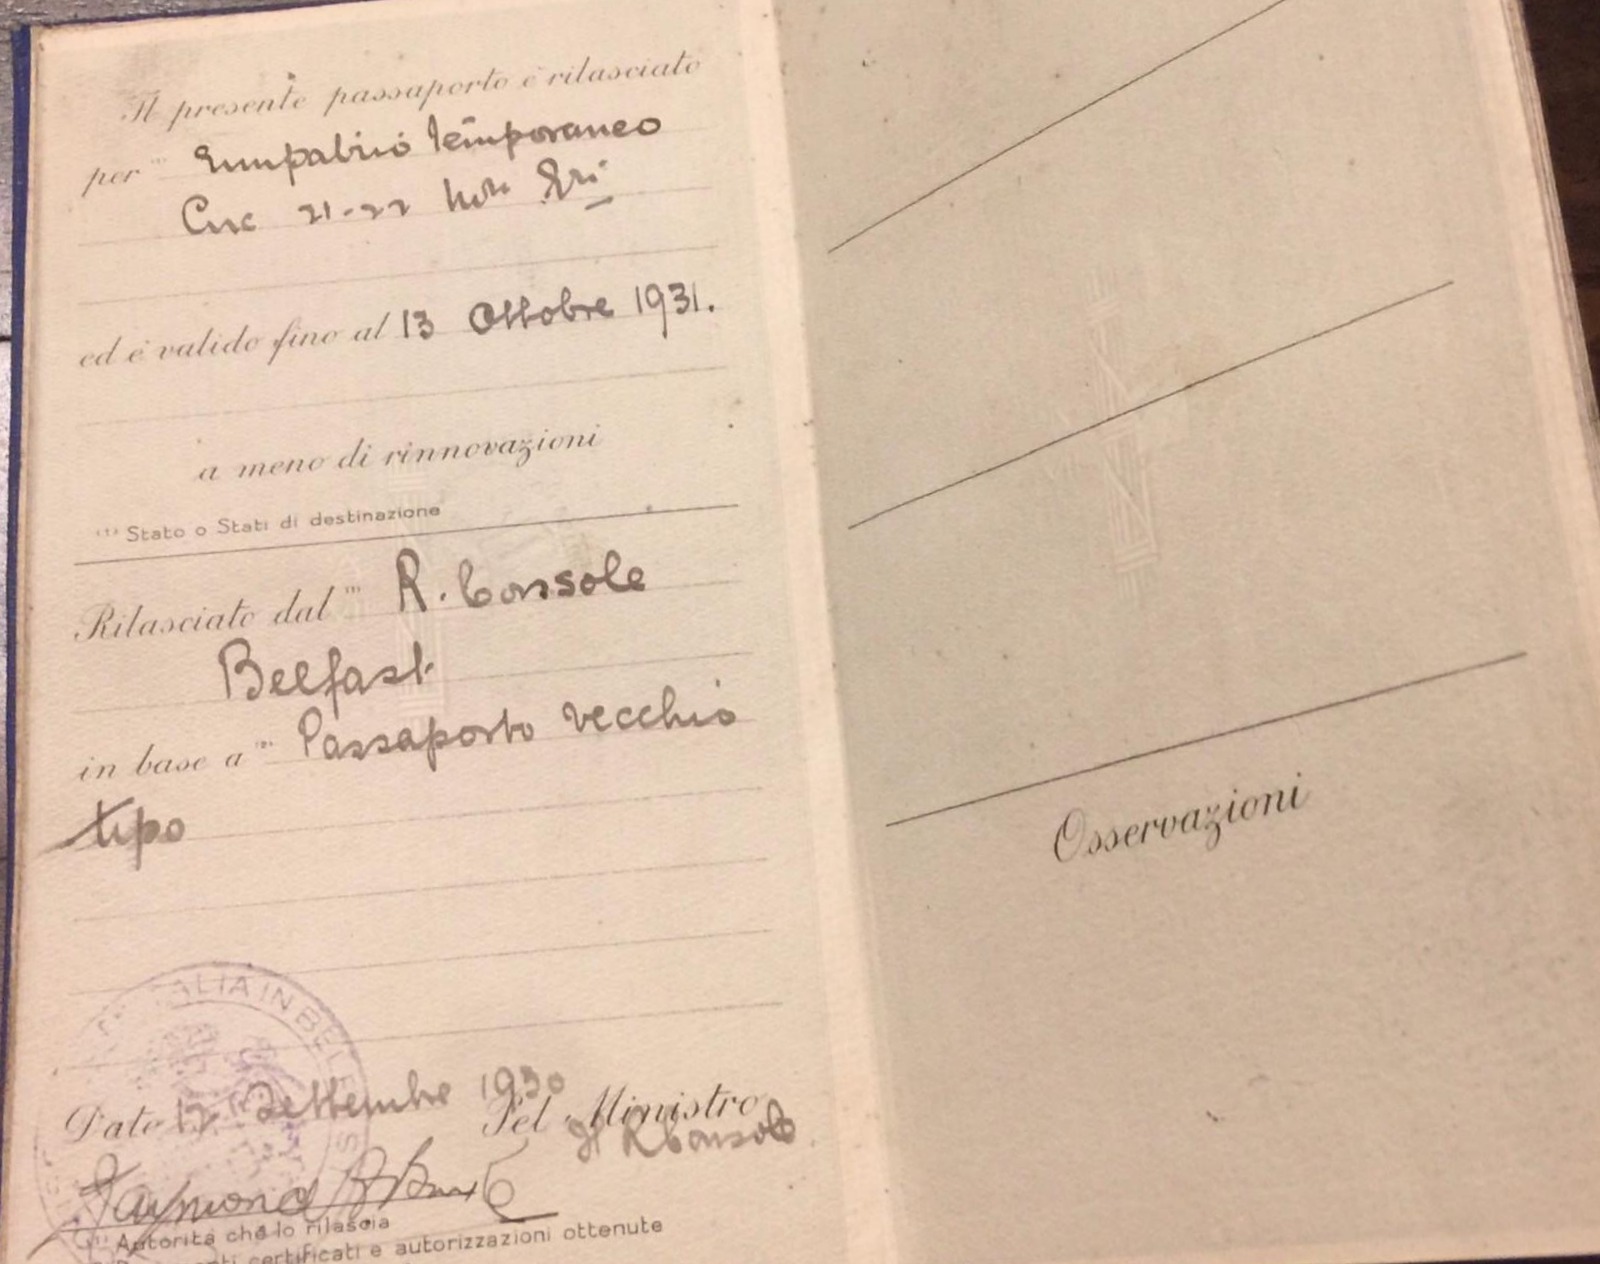 Il presente passaporto è rilasciato
per Rimpatrio temporaneo
Circ 21-22
ed è valido fino al 13 Ottobre 1931.
a meno di rinnovazioni
(1) Stato o Stati di destinazione
Rilasciato dal (1) R. Console
Belfast
in base a (2) Passaporto vecchio
tipo
ITALIA IN BELFAST
Data 12 Settembre 1930 Pel Ministro
Il R Console
Raymond
(1) Autorità che lo rilascia
certificati e autorizzazioni ottenute
Osservazioni